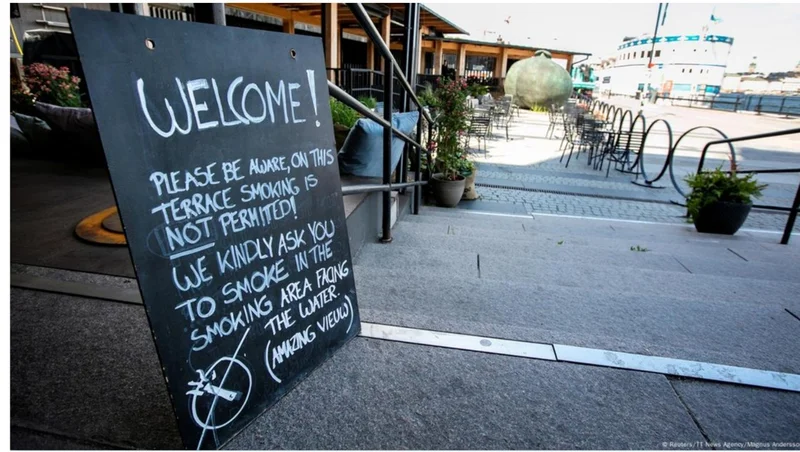 WELCOME!
PLEASE BE AWARE, ON THIS
TERRACE SMOKING IS
NOT PERMITED!
WE KINDLY ASK YOU
TO SMOKE IN THE
SMOKING AREA FACING
THE WATER.
(AMAZING VIEUW)
© Reuters/TT News Agency/Magnus Andersso